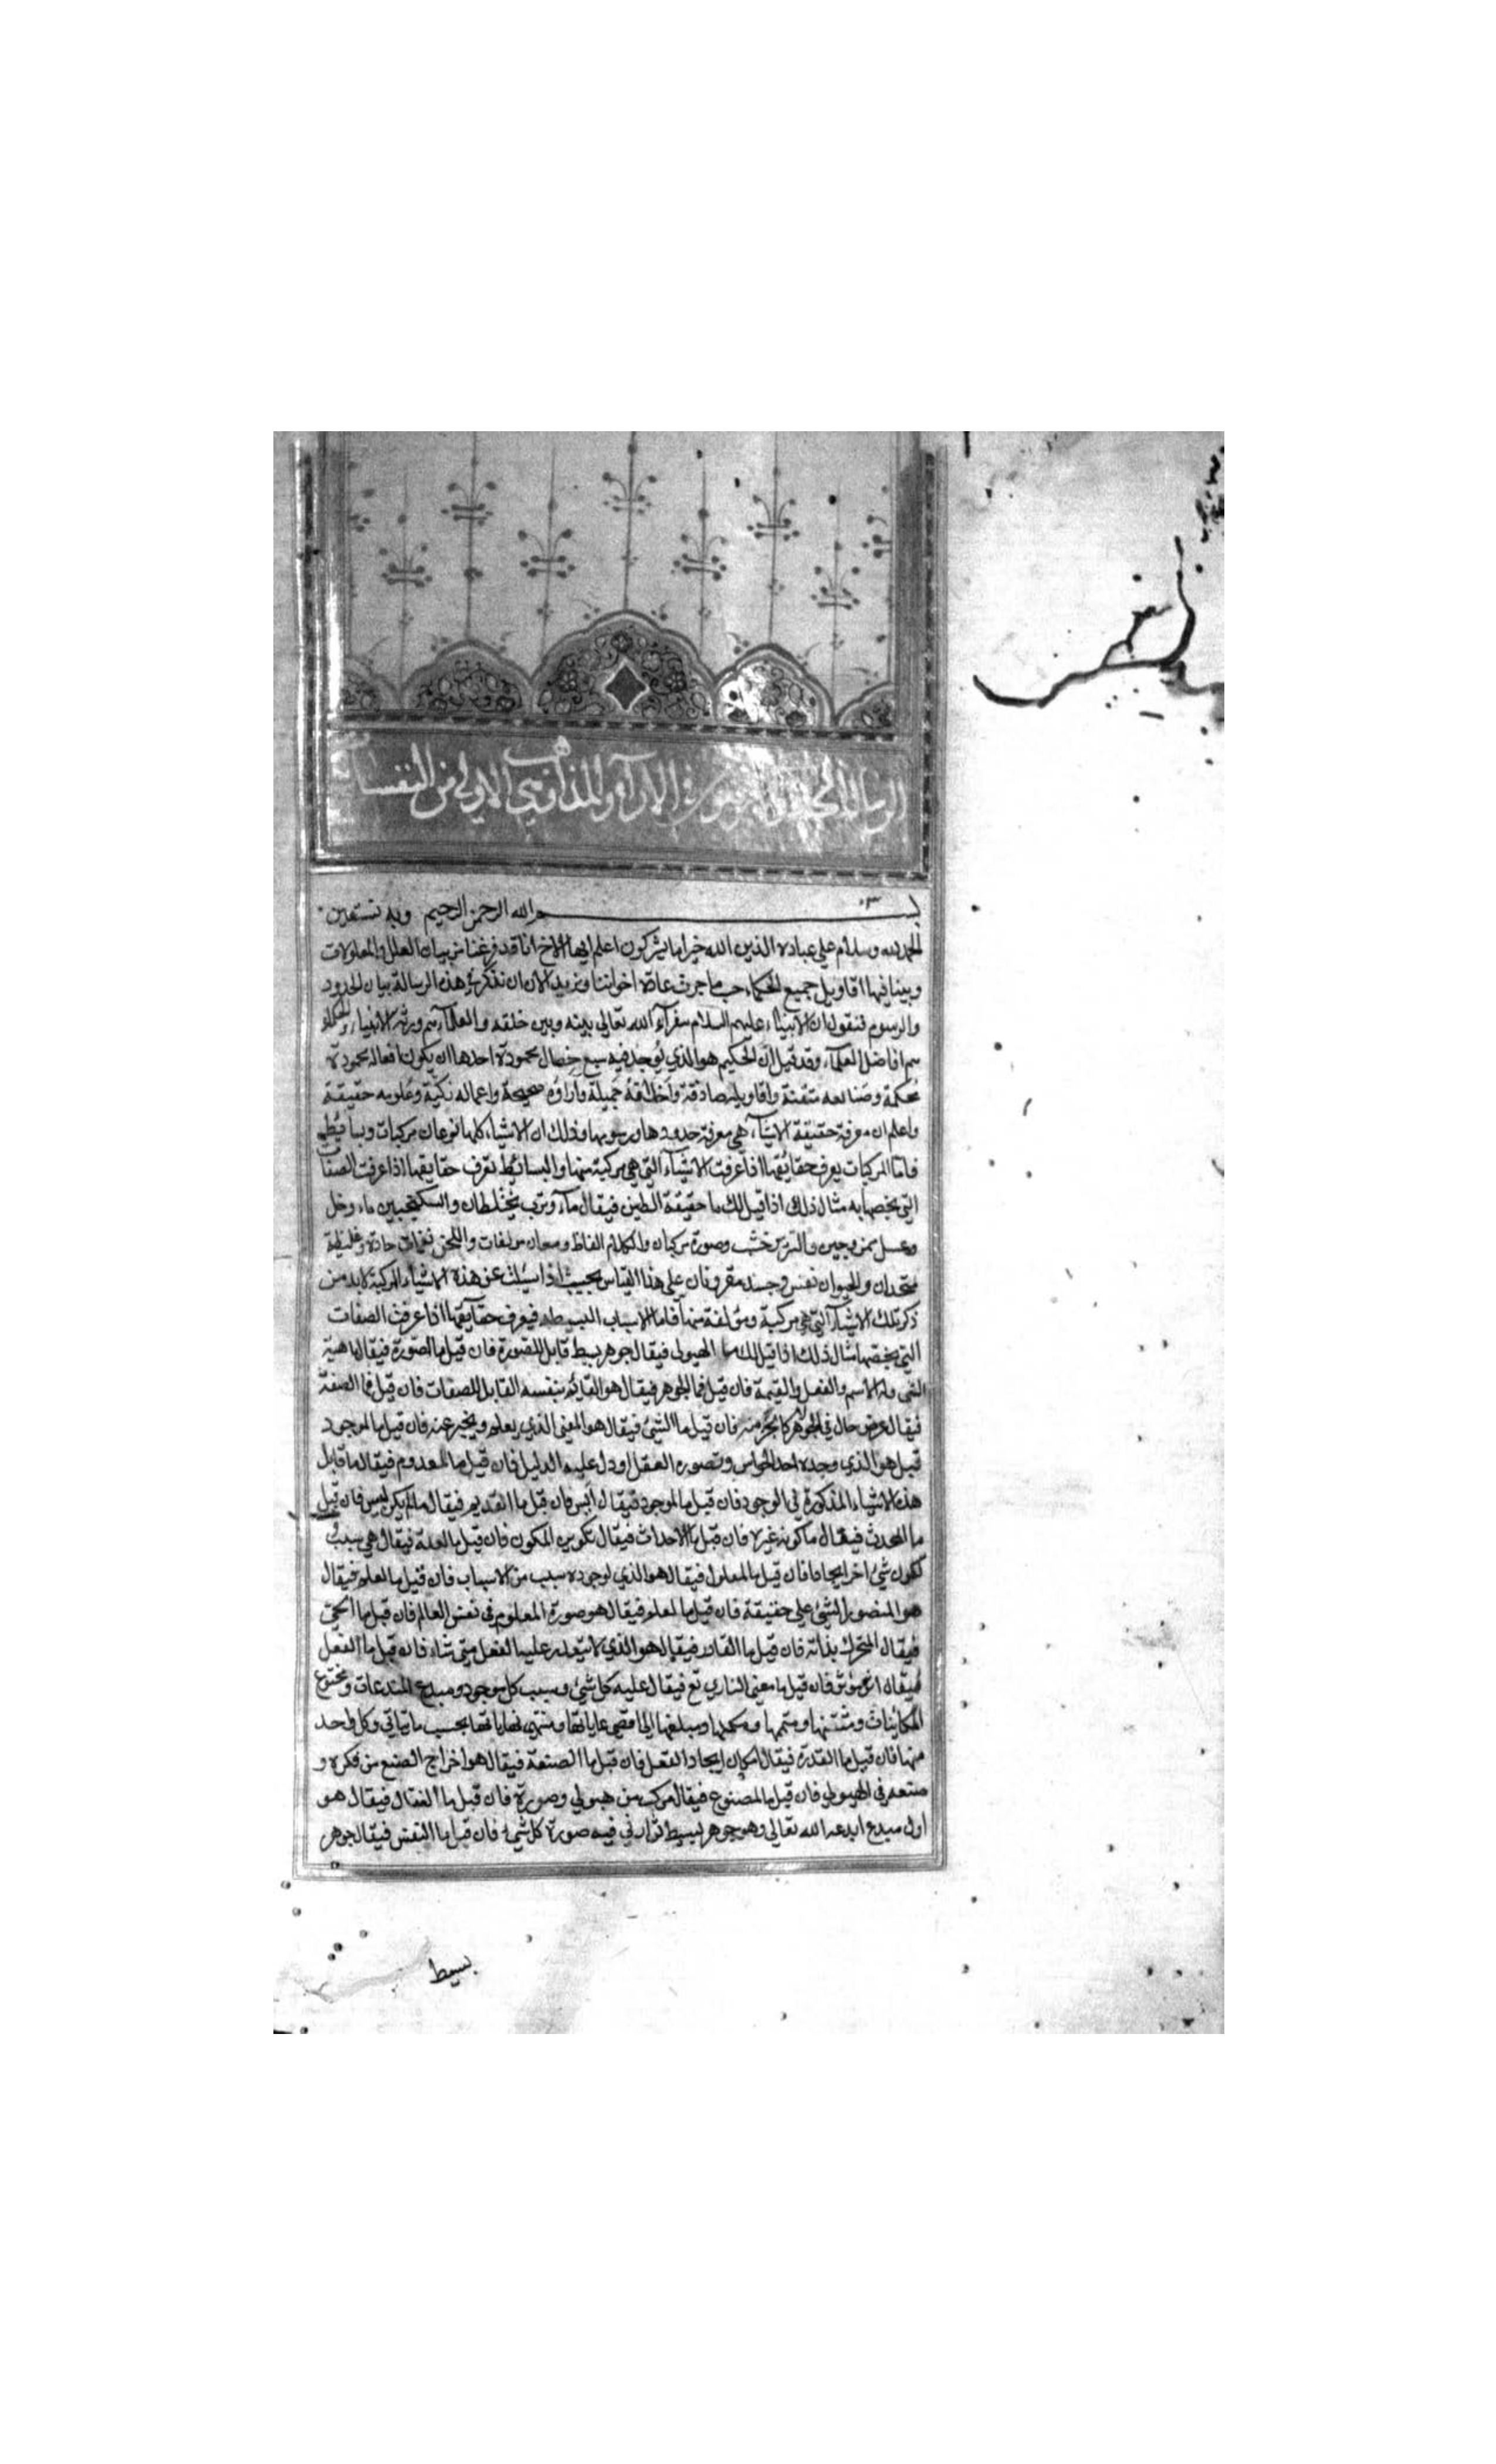 في الارآء والمذاهب وهي الاولى من النفسا
بسم الله الرحمن الرحيم وبه نستعين
الحمد لله وسلام على عباده الذين الله خير اما يشركون اعلم ايها الاخ انا قد فرغنا من بيان العلل والمعلولات
وبينا فيها اقاويل جميع الحكماء حسب ما جرت عادة اخواننا ونريد الان ان نذكر في هذه الرسالة بيان الحدود
والرسوم فنقول ان الانبياء عليهم السلام سفرآء الله تعالى بينه وبين خلقه والعلمآء هم ورثة الانبياء والحكماء
هم افاضل العلمآء وقد قيل انّ الحكيم هو الذي يُوجد فيه سبع خصال محمودة احدها ان يكون افعاله محمودة
محكمة وصنائعه متقنة واقاويله صادقة واخلاقه جميلة وآراؤه صحيحة واعماله زكيّة وعلومه حقيقة
واعلم ان معرفة حقيقة الاشيآء هي معرفة حدودها ورسومها وذلك ان الاشياء كلها نوعان مركبات وبسائط
فامّا المركبات يعرف حقائقها اذا عرفت الاشيآء التي هي مركبة منها والبسائط تعرف حقايقها اذا عرفت الصفات
التي يخصها به مثال ذلك اذا قيل لك ما حقيقة الطين فيقال مآء وترب مختلطان والسكنجبين ماء وخل
وعسل ممزوجين والسرير خشب وصورة مركبان والكلام الفاظ ومعان مولفات واللحن نغمات حادة وغليظة
متحدان والحيوان نفس وجسد مقرونان على هذا القياس بحيث اذا سئلت عن هذه الاشياء المركبة لابد من
ذكر تلك الاشيآء التي هي مركبة ومؤلفة منها فاما الاسباب البسيطه فيعرف حقايقها اذا عرفت الصفات
التي يخصها مثال ذلك اذا قيل لك ما الهيولى فيقال جوهر بسيط قابل للصورة فان قيل ما الصورة فيقال ماهية
الشي وله الاسم والفعل والقيمة فان قيل فما الجوهر فيقال هو القائم بنفسه القابل للصفات فان قيل فما الصفة
فيقال عرض حال في الجوهر كالجزء منه فان قيل ما الشئ فيقال هو المعنى الذي يعلم ويخبر عنه فان قيل ما الموجود
قيل هو الذي وجده احد الحواس وتصوره العقل او دل عليه الدليل فان قيل ما المعدوم فيقال ما قابل
هذه الاشياء المذكورة في الوجود فان قيل ما الموجود فيقال ايس فان قيل ما القديم فيقال ما لم يكن ليس فان قيل
ما المحدث فيقال ما كونه غيره فان قيل ما الاحداث فيقال تكوين المكون فان قيل ما العلة فيقال هي سبب
لكون شئ اخر ايجادا فان قيل ما المعلول فيقال هو الذي لوجوده سبب من الاسباب فان قيل ما العلم فيقال
هو المتصور الشئ على حقيقة فان قيل ما المعلم فيقال هو صورة المعلوم في نفس العالم فان قيل ما الحي
فيقال المتحرك بذاته فان قيل ما القادر فيقال هو الذي لا يتعذر عليه الفعل متى شاء فان قيل ما الفعل
فيقال اثر موثر فان قيل ما معنى الباري تع فيقال علية كل شئ وسبب كل موجود ومبدع المبدعات ومخترع
الكائنات ومتقنها ومتممها ومكملها ومبلغها الى اقصى غاياتها ومنتهى نهاياتها بحسب ما يتاتى وكل واحد
منها فان قيل ما القدرة فيقال امكان ايجاد الفعل فان قيل ما الصنعة فيقال هو اخراج الصنع من فكره و
في الهيولى فان قيل ما المصنوع فيقال مركب من هيولى وصورة فان قيل ما الفعّال فيقال هو
اول مبدع ابدعه الله تعالى وهو جوهر بسيط نوراني فيه صورة كل شئ فان قيل ما النفس فيقال جوهر
بسيط